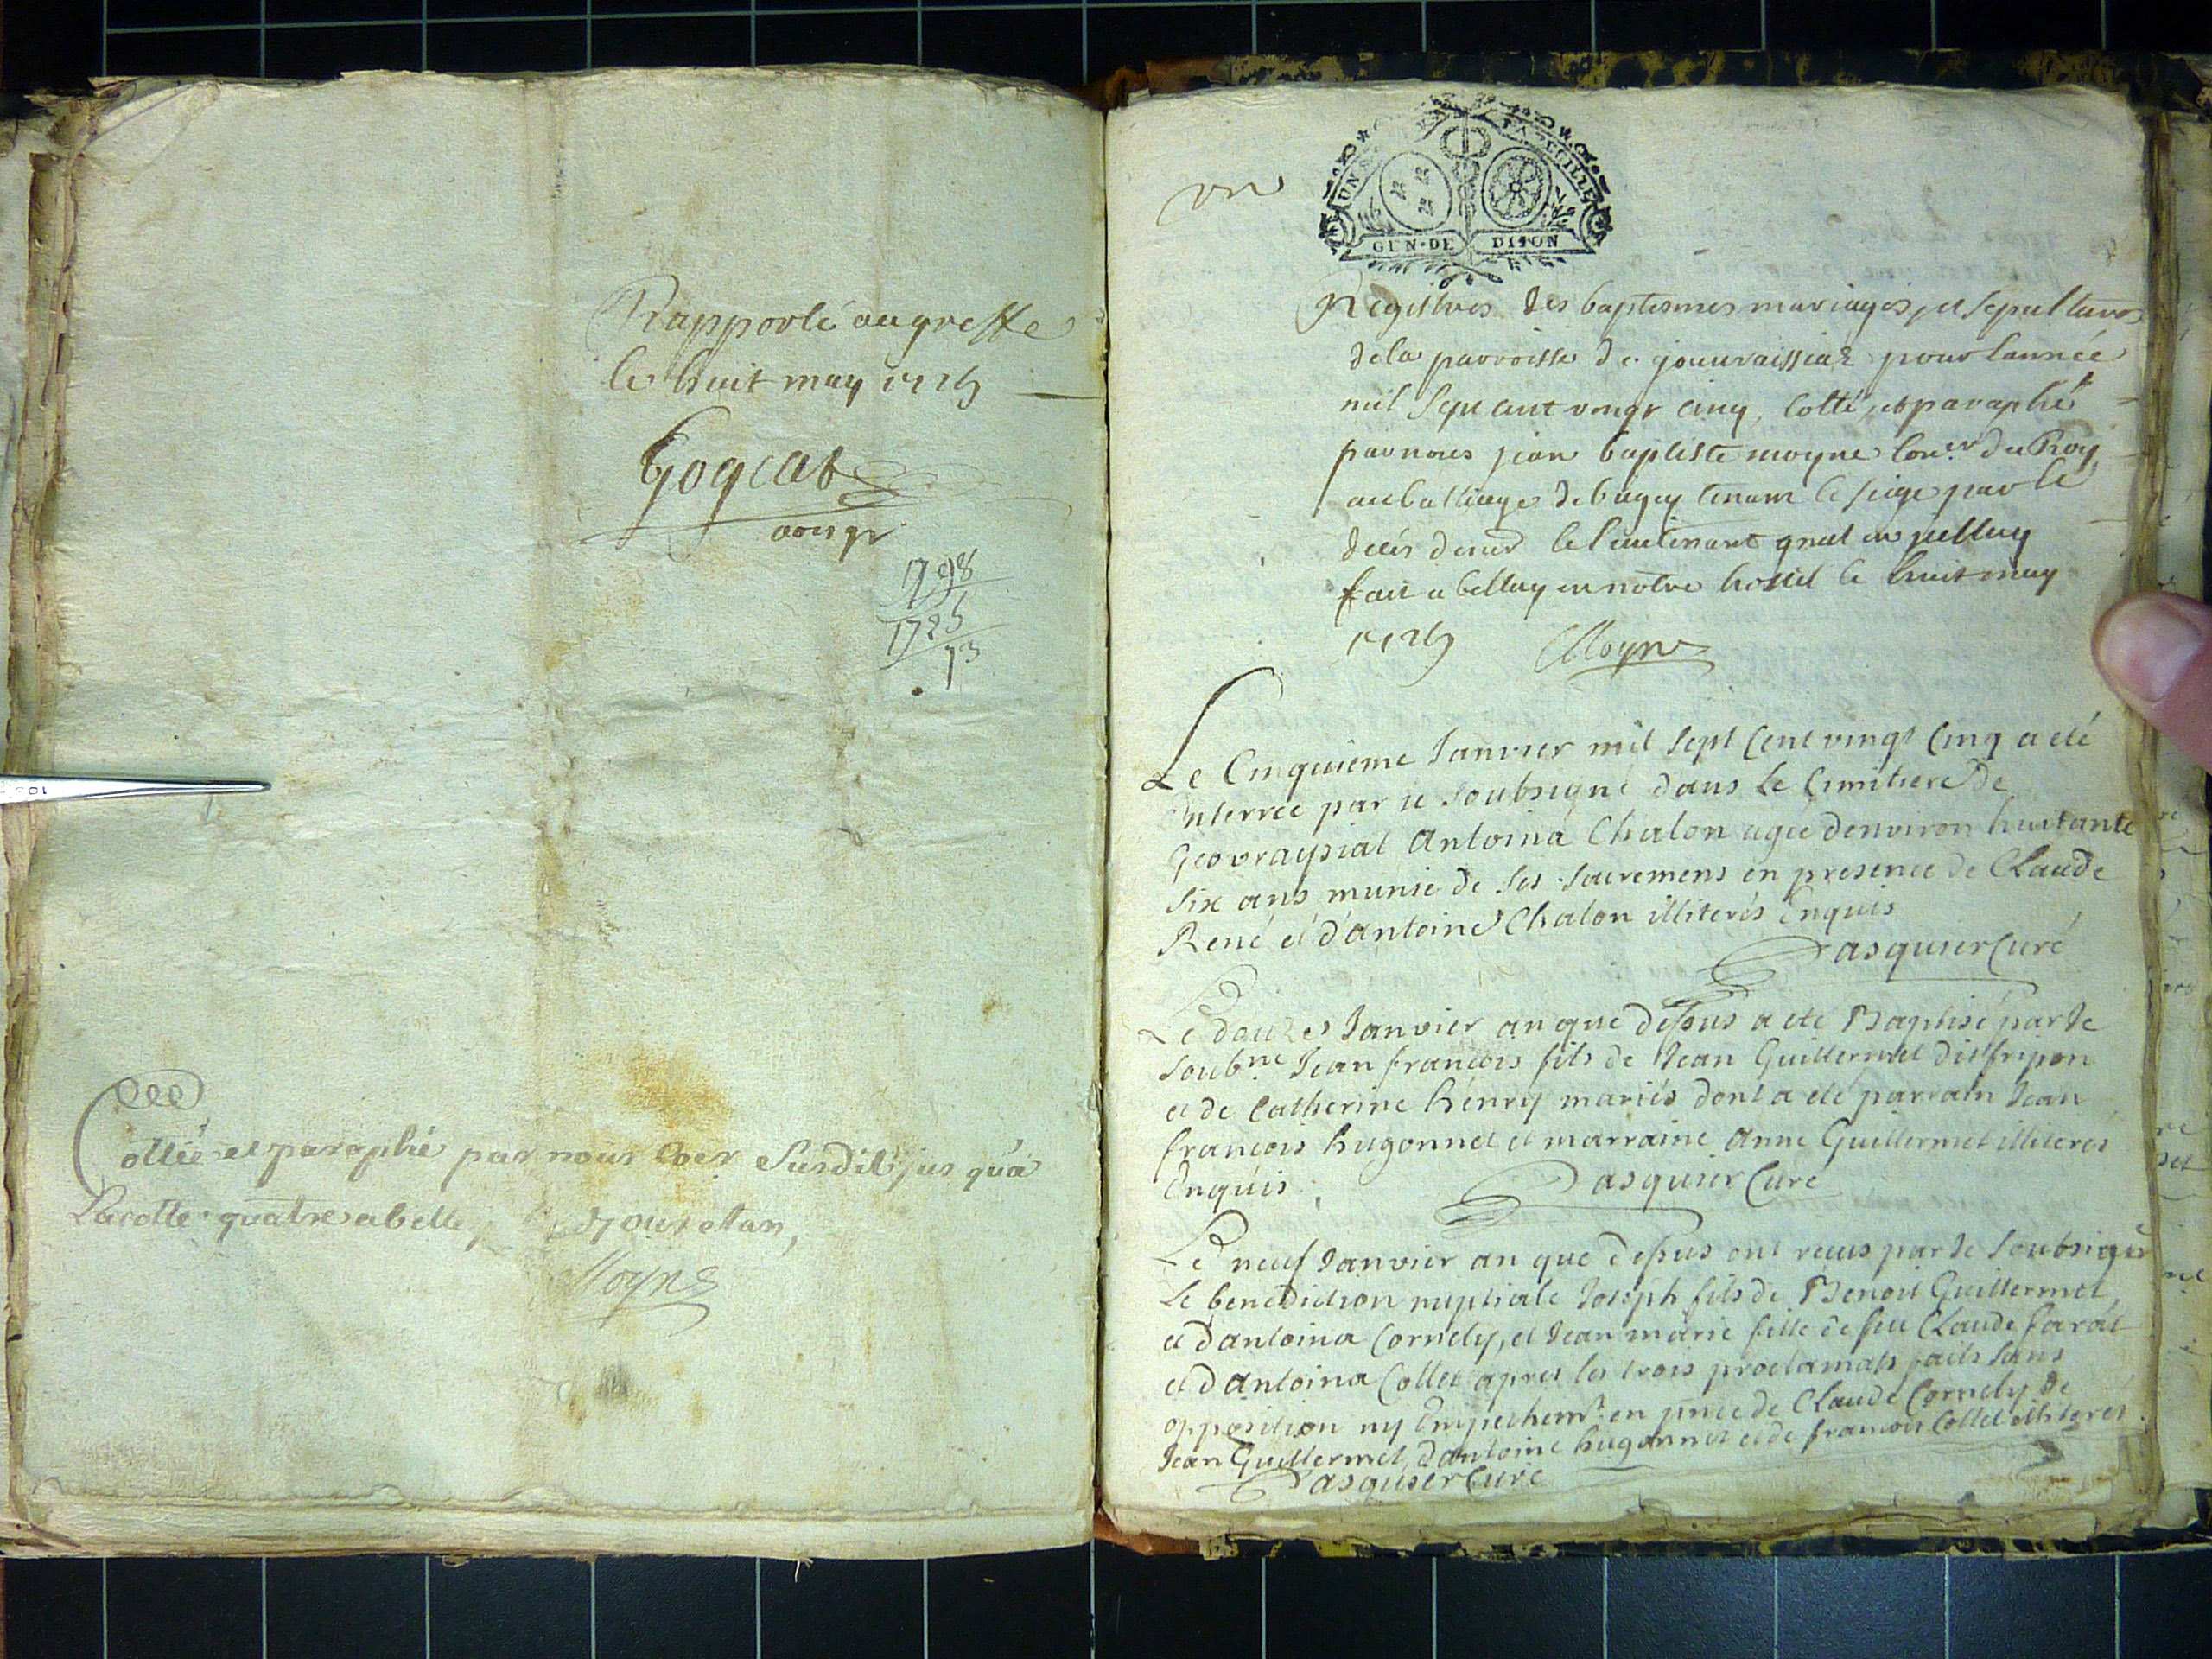 Rapporté au greffe
le huit may 1725
Gogeat
1798
1725
73
Cottée et paraphé par nous Coer Susdit jusqu'a
Lacotte quatre a belley jour et an,
Moyne
un
UN S
GEN · DE DIJON
Registres des baptesmes mariages, et sepultures
de la parroisse de jouuraissiaz pour lannée
mil sept cent vingt cinq, cotté, et paraphé
par nous jean baptiste moyne Coner du Roy
au balliage de bugey tenant le siege par le
deces de mr le lieutenant gnal
fait a belley en notre hostel le huit may
1725 Moyne
Le Cinquieme Janvier mil Sept Cent vingt Cinq a eté
Enterrée par je soubsigné dans Le Cimitiere de
Geovraysiat Antoina Chalon agee denviron huitante
Six ans munie de ses sacremens en presence de Claude
René et d'antoine Chalon illiterés Enquis
Pasquier Curé
Le douze Janvier an que dessus a eté Baptisé par Je
soubné Jean françois fils de Jean Guillermet dit fripon
et de Catherine henry mariés dont a eté parrain Jean
françois hugonnet et marraine Anne Guillermet illiterés
Enquis Pasquier Curé
Le neuf Janvier an que dessus ont recus par Je soubsigné
Le benediction nuptiale Joseph fils de Benoit Guillermet
et d'antoina Cornely, et Jean marie fille de feu Claude farat
et d'Antoina Collet apres les trois proclamats faits sans
opposition ny Empechemt en pnce de Claude Cornely de
Jean Guillermet, d'antoine hugonnet et de francois Collet illiterés
Pasquier Curé